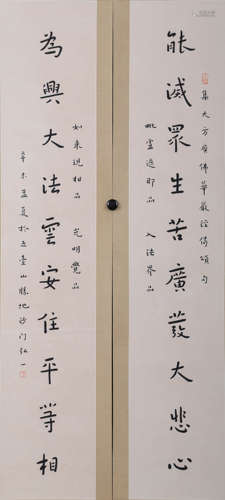 集大方廣佛華嚴經偈頌句
能滅眾生苦廣發大悲心
毗盧遮那品 入法界品
如來現相品 光明覺品
為興大法雲安住平等相
辛未孟夏於五臺山勝地沙門弘一